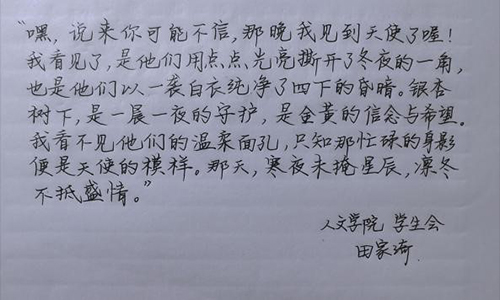 “嘿，说来你可能不信，那晚我见到天使了喔！
我看见了，是他们用点点光亮撕开了冬夜的一角，
也是他们以一袭白衣纯净了四下的昏暗。银杏
树下，是一晨一夜的守护，是金黄的信念与希望。
我看不见他们的温柔面孔，只知那忙碌的身影
便是天使的模样。那天，寒夜未掩星辰，凛冬
不抵盛情。”
人文学院 学生会
田家琦